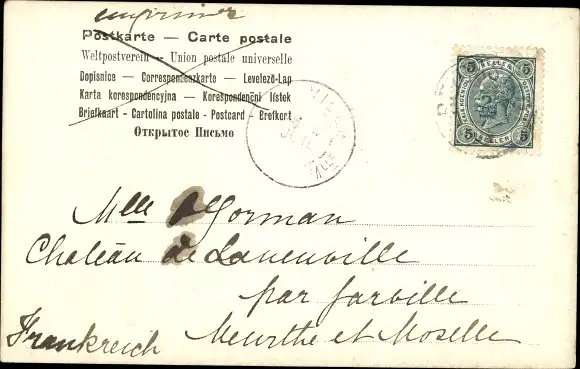 imprimé
Postkarte — Carte postale
Weltpostverein — Union postale universelle
Dopisnice — Correspondenzkarte — Levelező-Lap
Karta korespondencyjna — Korespondenční lístek
Briefkaart - Cartolina postale - Postcard - Brefkort
Открытое Письмо
5 HELLER 5
5 HELLER 5
Mlle Gorman
Château de Laneuville
par Jarville
Meurthe et Moselle
Frankreich